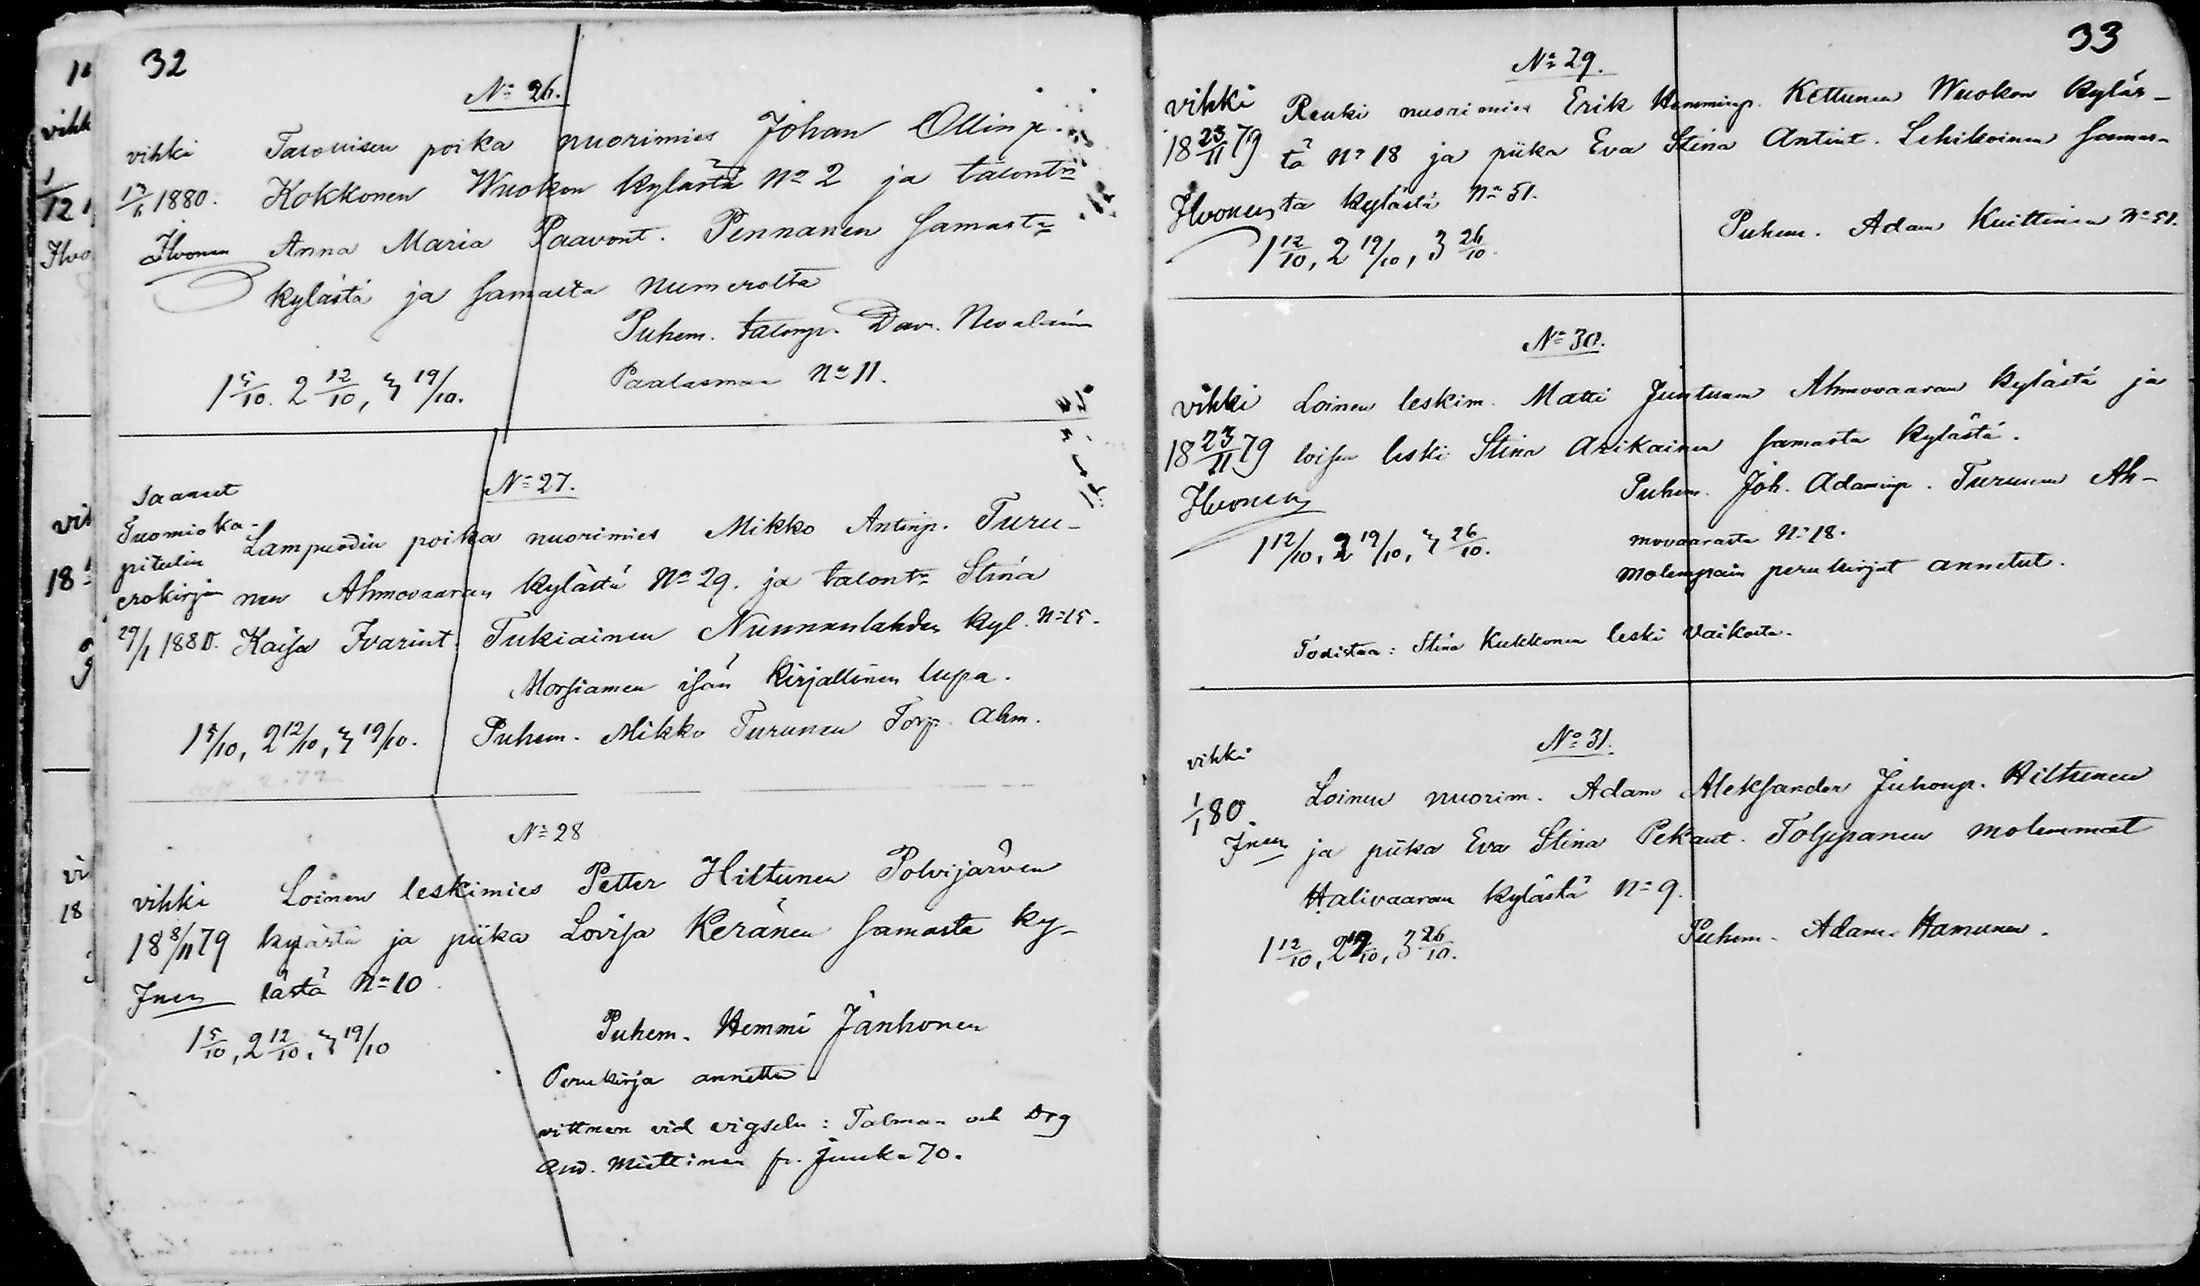 32
No 26.
vihki Talonisen poika nuorimies Johan Ollinp.
1880. Kokkonen Wuokon kylästä No 2 ja talontr
Ihvonen Anna Maria Paavont. Pennanen samasta
kylästä ja samasta numerolta
Puhem. talonp. Dav. Nevalain
Paalasmaa No 11.
1 5/10. 2 12/10, 3 19/10.
No 27.
saaneet
Tuomioka-
pitulin Lampuodin poika nuorimies Mikko Antinp. Turu-
erokirjan nen Ahmovaaran kylästä No 29. ja talontr Stina
29/1 1880. Kaisa Ivarint. Tukiainen Nunnanlahden kyl. No 15.
Morsiamen isän kirjallinen lupa.
1 5/10, 2 12/10, 3 19/10. Puhem. Mikko Turunen Torp. Ahm.
No 28
vihki Loinen leskimies Petter Hiltunen Polvijärven
18 8/11 79 kylästä ja piika Lovisa Keränen samasta ky-
Inen lästä No 10
1 5/10, 2 12/10, 3 19/10
Puhem. Hemmi Janhonen
Perukirja annettu
vittnen vid vigseln: Talman och Drg
And. Miettinen fr. Juuka 70.
33
No 29.
vihki Renki nuorimies Erik Hemminp. Kettunen Wuokon kyläs-
18 23/11 79 tä No 18 ja piika Eva Stina Antint. Lehikoinen samas-
Ihvonen ta kylästä No 51.
1 12/10, 2 19/10, 3 26/10.
Puhem. Adam Kuittinen No 51.
No 30.
vihki Loinen leskim. Matti Juntunen Ahmovaaran kylästä ja
18 23/11 79 loisen leski Stina Asikainen samasta kylästä.
Ihvonen Puhem. Joh. Adaminp. Turunen Ah-
1 12/10, 2 19/10, 3 26/10. movaarasta No 18.
Molempain perukirjat annetut.
Todistaa: Stina Kukkonen leski Vaikosta.
No 31.
vihki
1/1 80 Loinen nuorim. Adam Aleksander Juhonp. Hiltunen
Inen ja piika Eva Stina Pekant. Tolppanen molemmat
Halivaaran kylästä No 9.
1 12/10, 2 19/10, 3 26/10.
Puhem. Adam Hamunen.